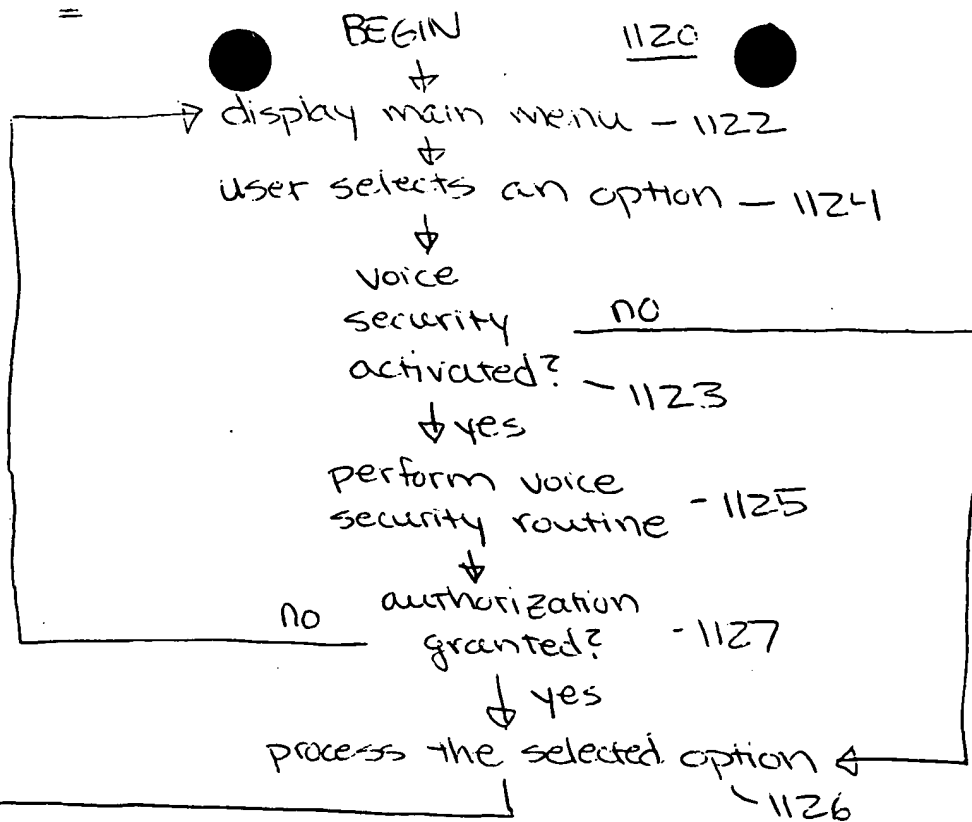 =
BEGIN 1120
display main menu - 1122
user selects an option - 1124
voice
security no
activated? - 1123
yes
perform voice
security routine - 1125
no authorization
granted? - 1127
yes
process the selected option
- 1126